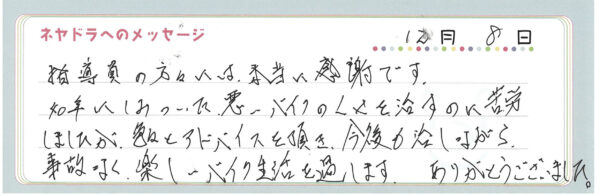 ネヤドラへのメッセージ
12月 8日
指導員の方々には、本当に感謝です。
知らずにしみついた悪いバイクのくせを治すのに苦労
しましたが、色々とアドバイスを頂き、今後も治しながら、
事故なく、楽しいバイク生活を過します。 ありがとうございました。